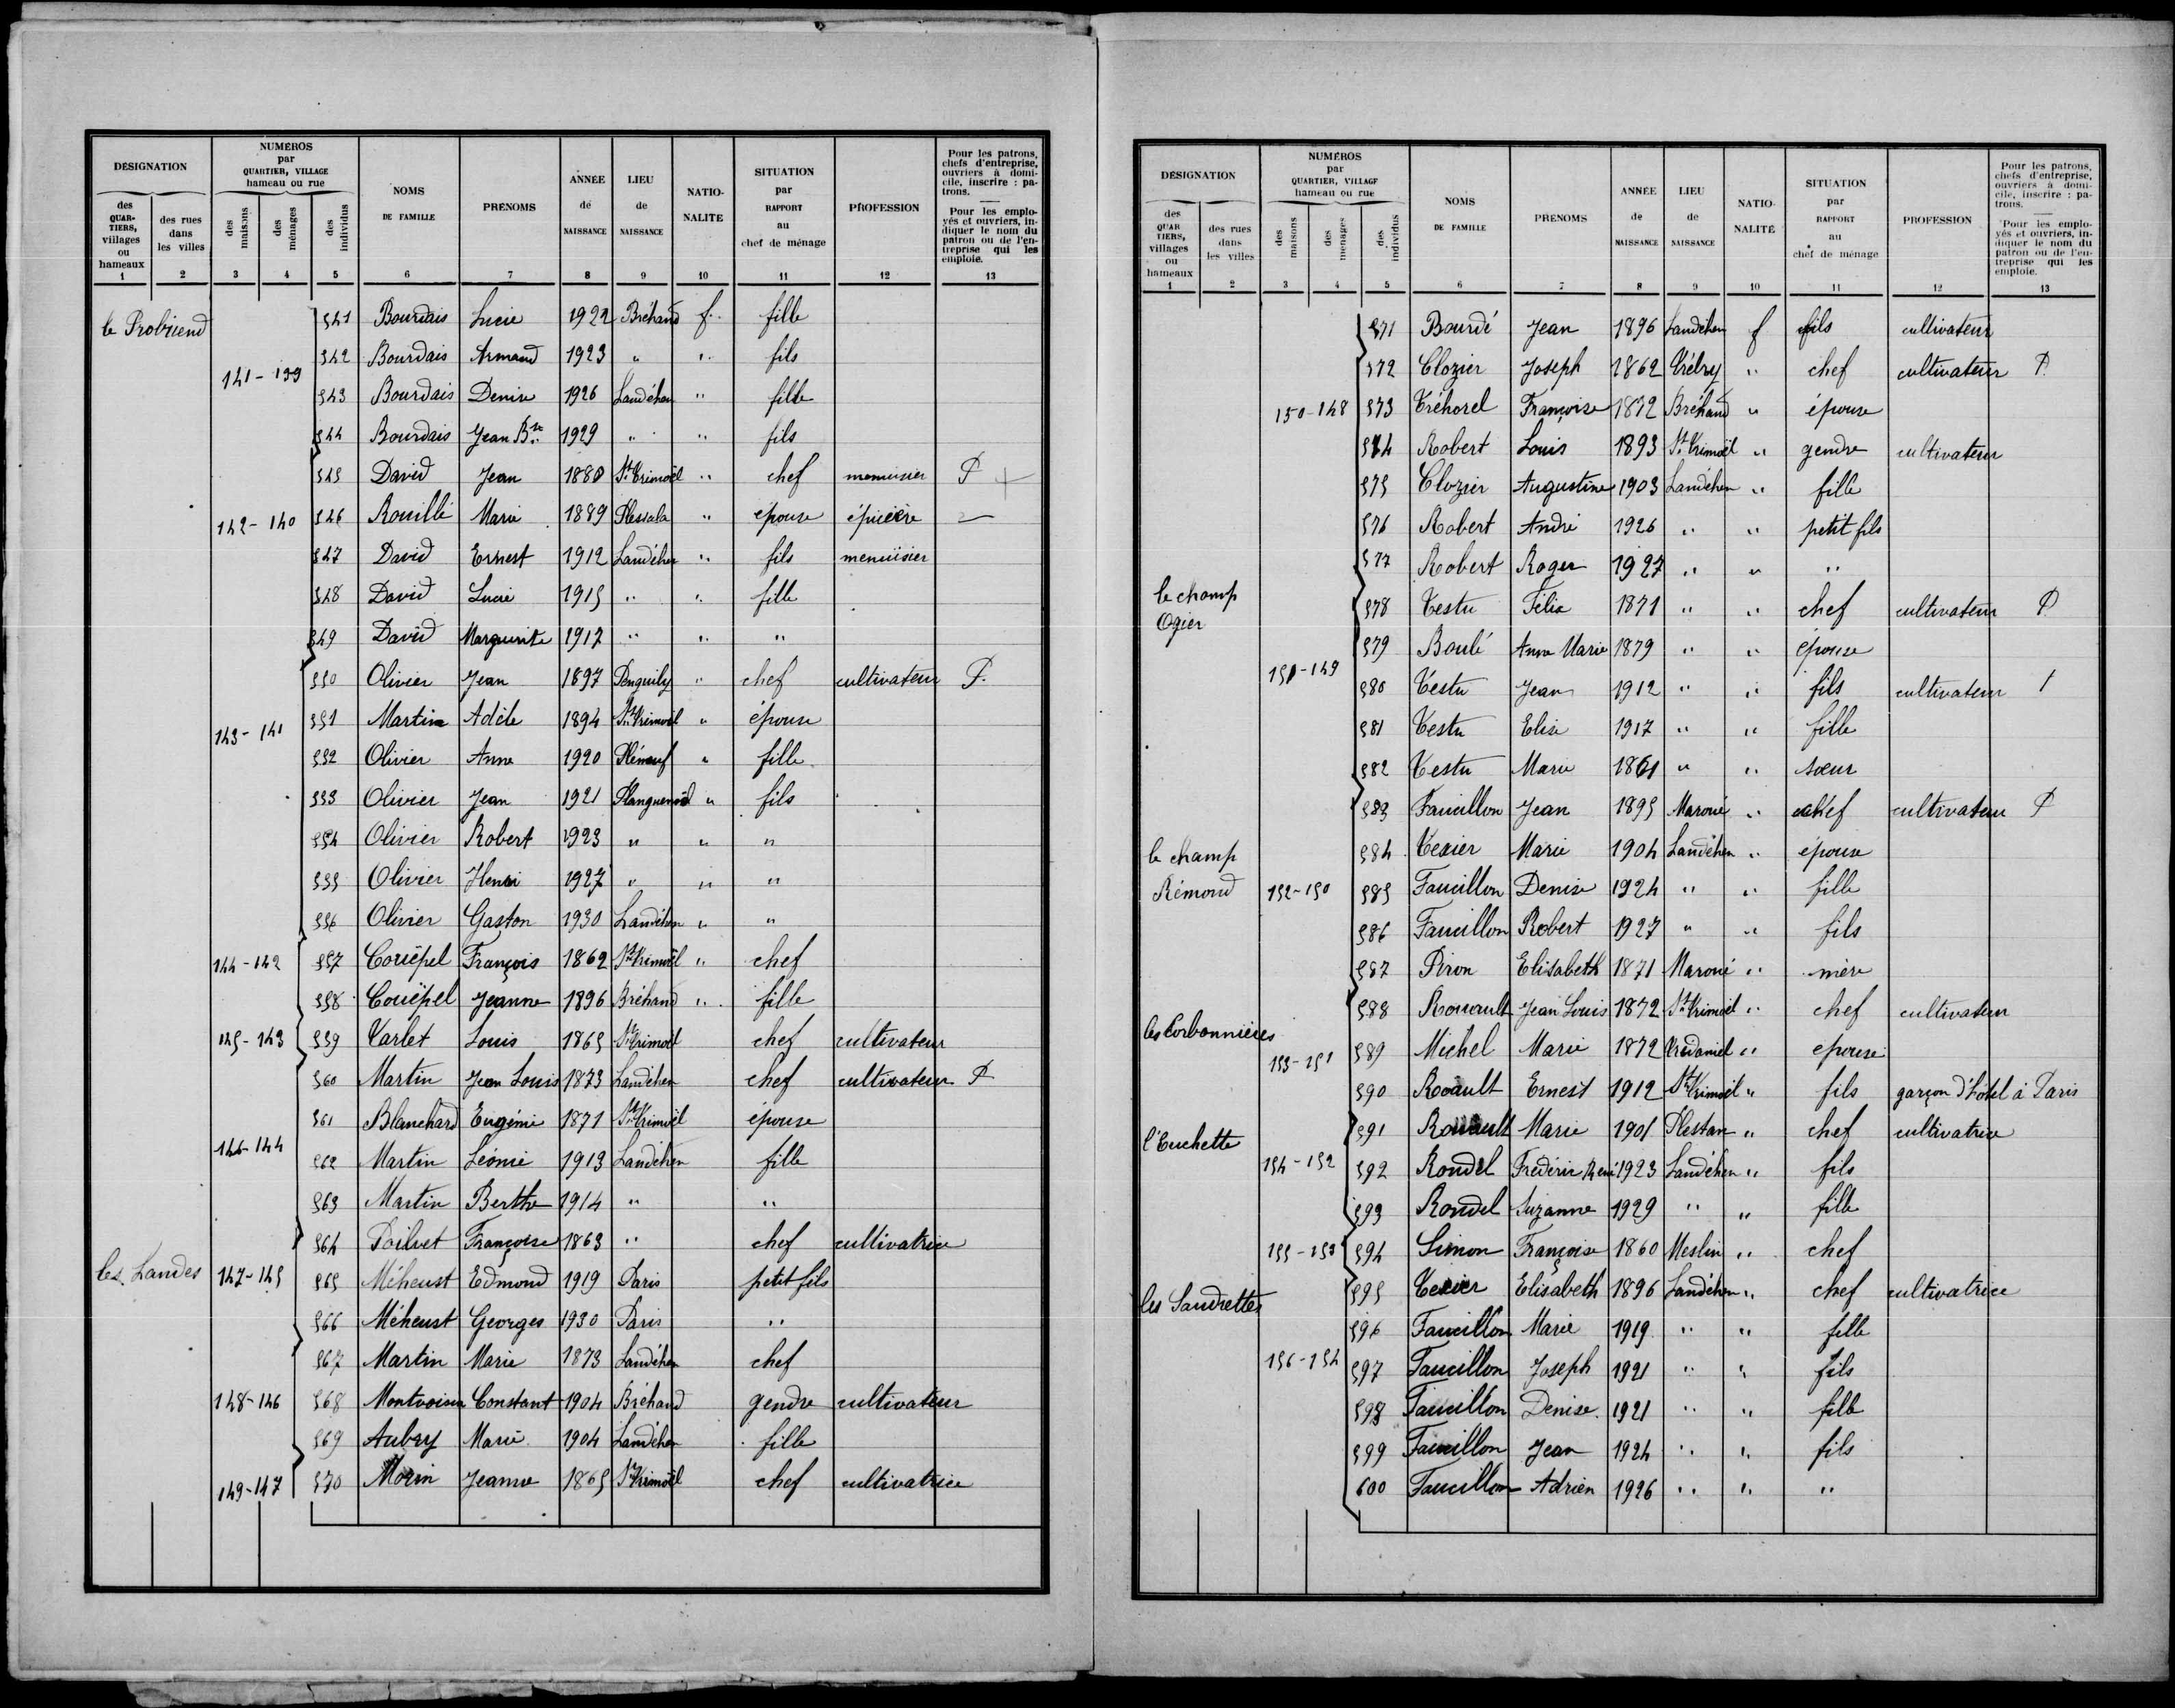 DÉSIGNATION
NUMÉROS par QUARTIER, VILLAGE hameau ou rue
NOMS DE FAMILLE
PRÉNOMS
ANNÉE de NAISSANCE
LIEU de NAISSANCE
NATIO- NALITÉ
SITUATION par RAPPORT au chef de ménage
PROFESSION
Pour les patrons, chefs d'entreprise, ouvriers à domi- cile, inscrire : pa- trons.
Pour les emplo- yés et ouvriers, in- diquer le nom du patron ou de l'en- treprise qui les emploie.
des QUAR- TIERS, villages ou hameaux
des rues dans les villes
des maisons
des ménages
des individus
1 2 3 4 5 6 7 8 9 10 11 12 13
541 Bourdais Lucie 1922 Bréhand f. fille
141-139 542 Bourdais Armand 1923 " " fils
543 Bourdais Denise 1926 Landéhen " fille
544 Bourdais Jean Bte 1929 " " fils
545 David Jean 1880 St Trimoël " chef menuisier P
142-140 546 Rouillé Marie 1889 Plessala " épouse épicière
547 David Ernest 1912 Landéhen " fils menuisier
548 David Lucie 1915 " " fille
549 David Marguerite 1917 " " "
550 Olivier Jean 1897 Penguily " chef cultivateur P.
143-141 551 Martin Adèle 1894 St Trimoël " épouse
552 Olivier Anne 1920 Pléneuf " fille
553 Olivier Jean 1921 Planguenoël " fils
554 Olivier Robert 1923 " " "
555 Olivier Henri 1927 " " "
556 Olivier Gaston 1930 Landéhen " "
144-142 557 Couëpel François 1862 St Trimoël " chef
558 Couëpel Jeanne 1896 Bréhand " fille
145-143 559 Varlet Louis 1865 St Trimoël chef cultivateur
560 Martin Jean Louis 1873 Landéhen chef cultivateur P
561 Blanchard Eugénie 1871 St Trimoël épouse
146-144 562 Martin Léonie 1913 Landéhen fille
563 Martin Berthe 1914 " "
564 Poilvet Françoise 1863 " chef cultivatrice
les Landes 147-145 565 Méheust Edmond 1919 Paris petit fils
566 Méheust Georges 1930 Paris "
567 Martin Marie 1873 Landéhen chef
148-146 568 Montvoisin Constant 1904 Bréhand gendre cultivateur
569 Aubry Marie 1904 Landéhen fille
149-147 570 Morin Jeanne 1865 St Trimoël chef cultivatrice
DÉSIGNATION
NUMÉROS par QUARTIER, VILLAGE hameau ou rue
NOMS DE FAMILLE
PRÉNOMS
ANNÉE de NAISSANCE
LIEU de NAISSANCE
NATIO- NALITÉ
SITUATION par RAPPORT au chef de ménage
PROFESSION
Pour les patrons, chefs d'entreprise, ouvriers à domi- cile, inscrire : pa- trons.
Pour les emplo- yés et ouvriers, in- diquer le nom du patron ou de l'en- treprise qui les emploie.
des QUAR TIERS, villages ou hameaux
des rues dans les villes
des maisons
des ménages
des individus
1 2 3 4 5 6 7 8 9 10 11 12 13
571 Bourdé Jean 1896 Landéhen f fils cultivateur
572 Clozier Joseph 1862 Trébry " chef cultivateur P.
150-148 573 Tréhorel Françoise 1872 Bréhand " épouse
574 Robert Louis 1893 St Trimoël " gendre cultivateur
575 Clozier Augustine 1903 Landéhen " fille
576 Robert André 1926 " " petit fils
577 Robert Roger 1927 " " "
le champ Ogier 578 Testu Félix 1871 " " chef cultivateur P
579 Boulé Anne Marie 1879 " " épouse
151-149 580 Testu Jean 1912 " " fils cultivateur
581 Testu Elise 1917 " " fille
582 Testu Marie 1861 " " sœur
583 Faucillon Jean 1895 Maroué " chef cultivateur P
le champ 584 Texier Marie 1904 Landéhen " épouse
Rémond 152-150 585 Faucillon Denise 1924 " " fille
586 Faucillon Robert 1927 " " fils
587 Piron Elisabeth 1871 Maroué " mère
588 Rouault Jean Louis 1872 St Trimoël " chef cultivateur
les Corbonnières 153-151 589 Michel Marie 1872 Trédaniel " épouse
590 Rouault Ernest 1912 St Trimoël " fils garçon d'hôtel à Paris
l'Euchette 591 Rouault Marie 1901 Plestan " chef cultivatrice
154-152 592 Rondel Frédéric René 1923 Landéhen " fils
593 Rondel Suzanne 1929 " " fille
155-153 594 Simon Françoise 1860 Meslin " chef
les Saudrettes 595 Texier Elisabeth 1896 Landéhen " chef cultivatrice
596 Faucillon Marie 1919 " " fille
156-154 597 Faucillon Joseph 1921 " " fils
598 Faucillon Denise 1921 " " fille
599 Faucillon Jean 1924 " " fils
600 Faucillon Adrien 1926 " " "